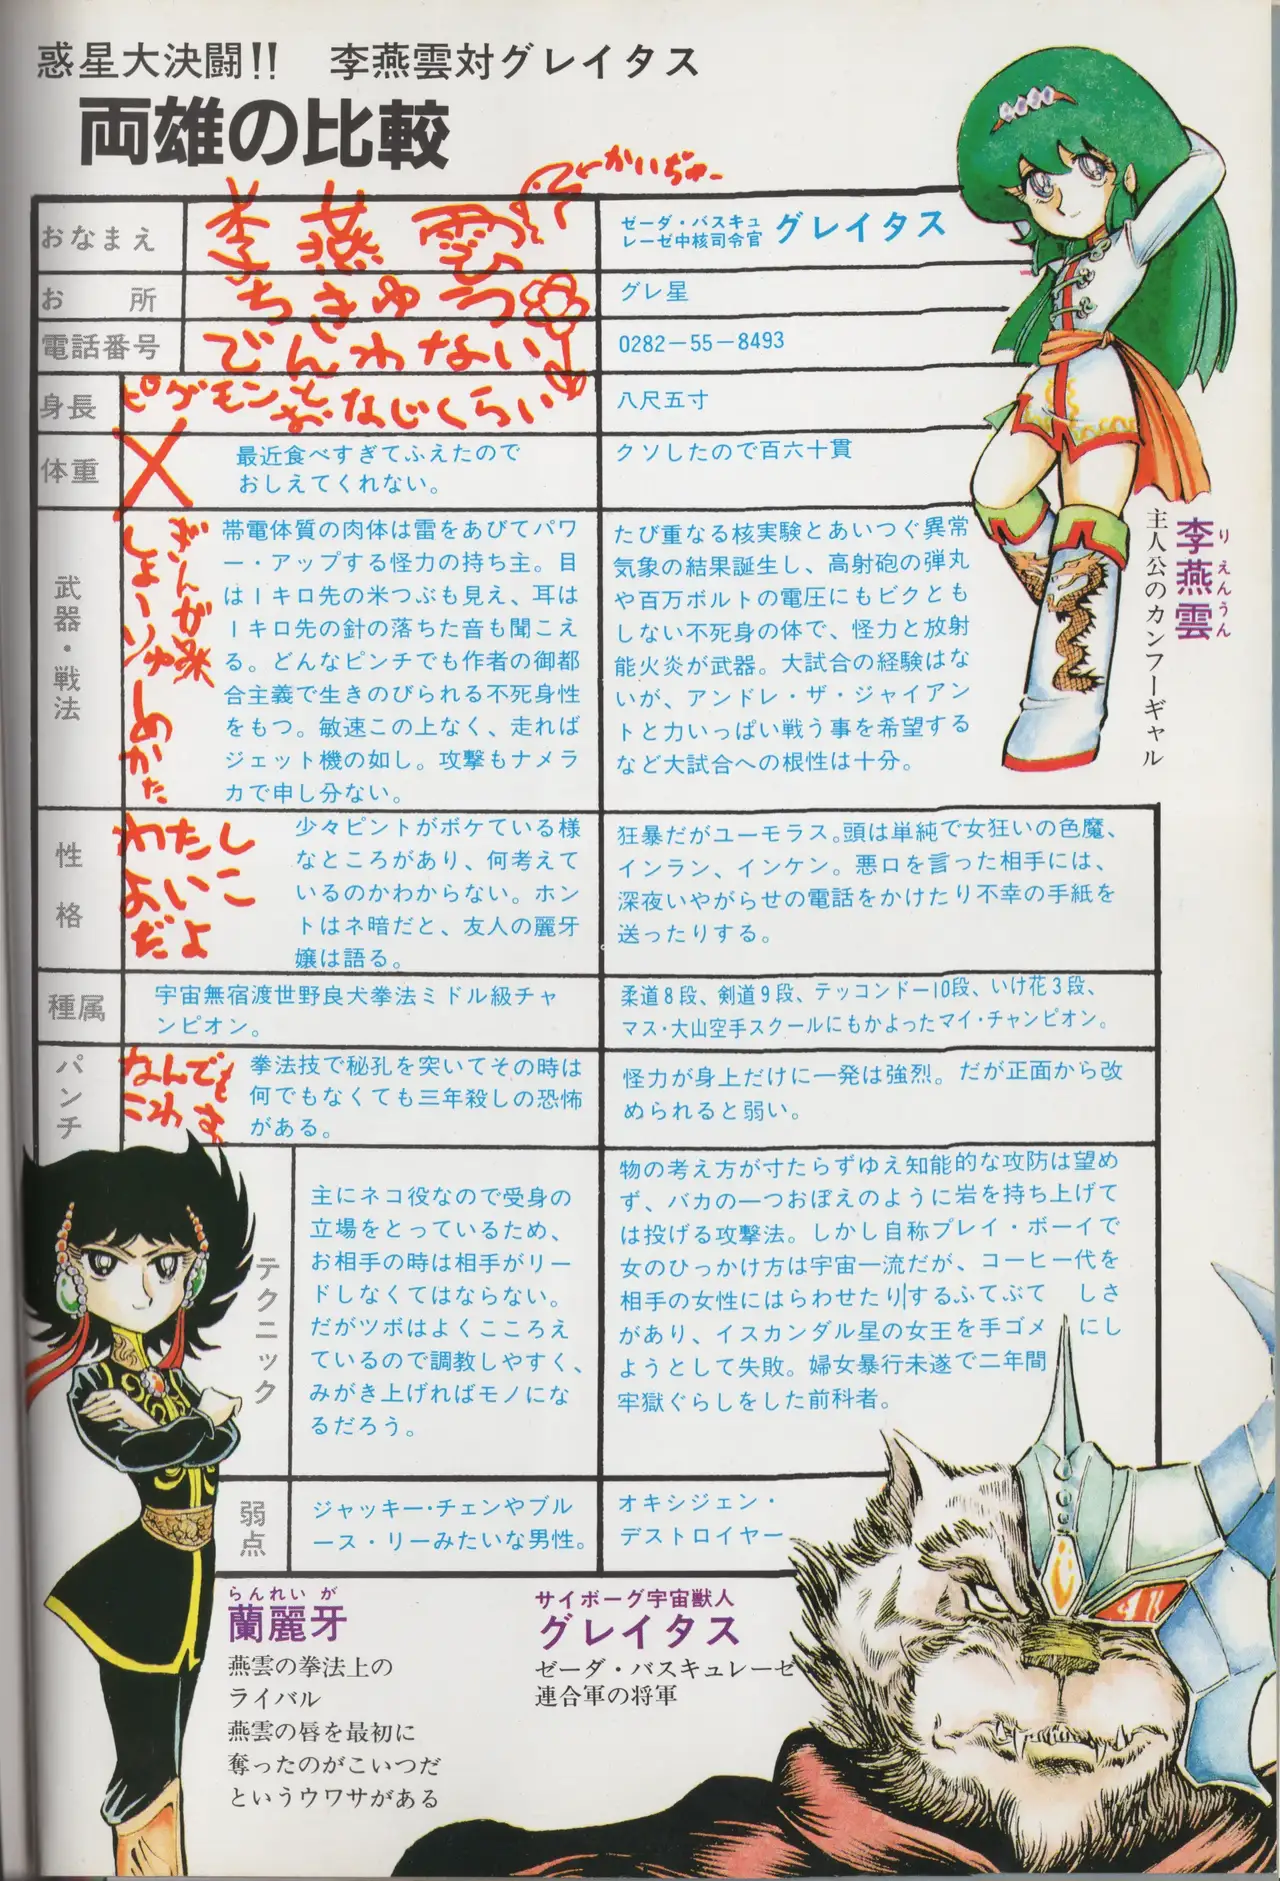 惑星大決闘!!　李燕雲対グレイタス
両雄の比較
おなまえ
李燕雲
←かいぢゅー
ゼーダ・バスキュ
レーゼ中核司令官
グレイタス
お　所
ちきゅう
グレ星
電話番号
でんわない
0282－55－8493
身長
ピグモンと
おなじくらい
八尺五寸
体重
最近食べすぎてふえたので
おしえてくれない。
クソしたので百六十貫
武器・戦法
ざんが楽
しょーりゅ
めかた
帯電体質の肉体は雷をあびてパワ
ー・アップする怪力の持ち主。目
は一キロ先の米つぶも見え、耳は
一キロ先の針の落ちた音も聞こえ
る。どんなピンチでも作者の御都
合主義で生きのびられる不死身性
をもつ。敏速この上なく、走れば
ジェット機の如し。攻撃もナメラ
カで申し分ない。
たび重なる核実験とあいつぐ異常
気象の結果誕生し、高射砲の弾丸
や百万ボルトの電圧にもビクとも
しない不死身の体で、怪力と放射
能火炎が武器。大試合の経験はな
いが、アンドレ・ザ・ジャイアン
トと力いっぱい戦う事を希望する
など大試合への根性は十分。
性格
わたし
よいこ
だよ
少々ピントがボケている様
なところがあり、何考えて
いるのかわからない。ホン
トはネ暗だと、友人の麗牙
嬢は語る。
狂暴だがユーモラス。頭は単純で女狂いの色魔、
インラン、インケン。悪口を言った相手には、
深夜いやがらせの電話をかけたり不幸の手紙を
送ったりする。
種属
宇宙無宿渡世野良犬拳法ミドル級チャ
ンピオン。
柔道8段、剣道9段、テッコンドー10段、いけ花3段、
マス・大山空手スクールにもかよったマイ・チャンピオン。
パンチ
なんでも
こわす
拳法技で秘孔を突いてその時は
何でもなくても三年殺しの恐怖
がある。
怪力が身上だけに一発は強烈。だが正面から改
められると弱い。
テクニック
主にネコ役なので受身の
立場をとっているため、
お相手の時は相手がリー
ドしなくてはならない。
だがツボはよくこころえ
ているので調教しやすく、
みがき上げればモノにな
るだろう。
物の考え方が寸たらずゆえ知能的な攻防は望め
ず、バカの一つおぼえのように岩を持ち上げて
は投げる攻撃法。しかし自称プレイ・ボーイで
女のひっかけ方は宇宙一流だが、コーヒー代を
相手の女性にはらわせたりするふてぶて　しさ
があり、イスカンダル星の女王を手ゴメ　にし
ようとして失敗。婦女暴行未遂で二年間
牢獄ぐらしをした前科者。
弱点
ジャッキー・チェンやブル
ース・リーみたいな男性。
オキシジェン・
デストロイヤー
李燕雲
りえんうん
主人公のカンフーギャル
らんれいが
蘭麗牙
燕雲の拳法上の
ライバル
燕雲の唇を最初に
奪ったのがこいつだ
というウワサがある
サイボーグ宇宙獣人
グレイタス
ゼーダ・バスキュレーゼ
連合軍の将軍